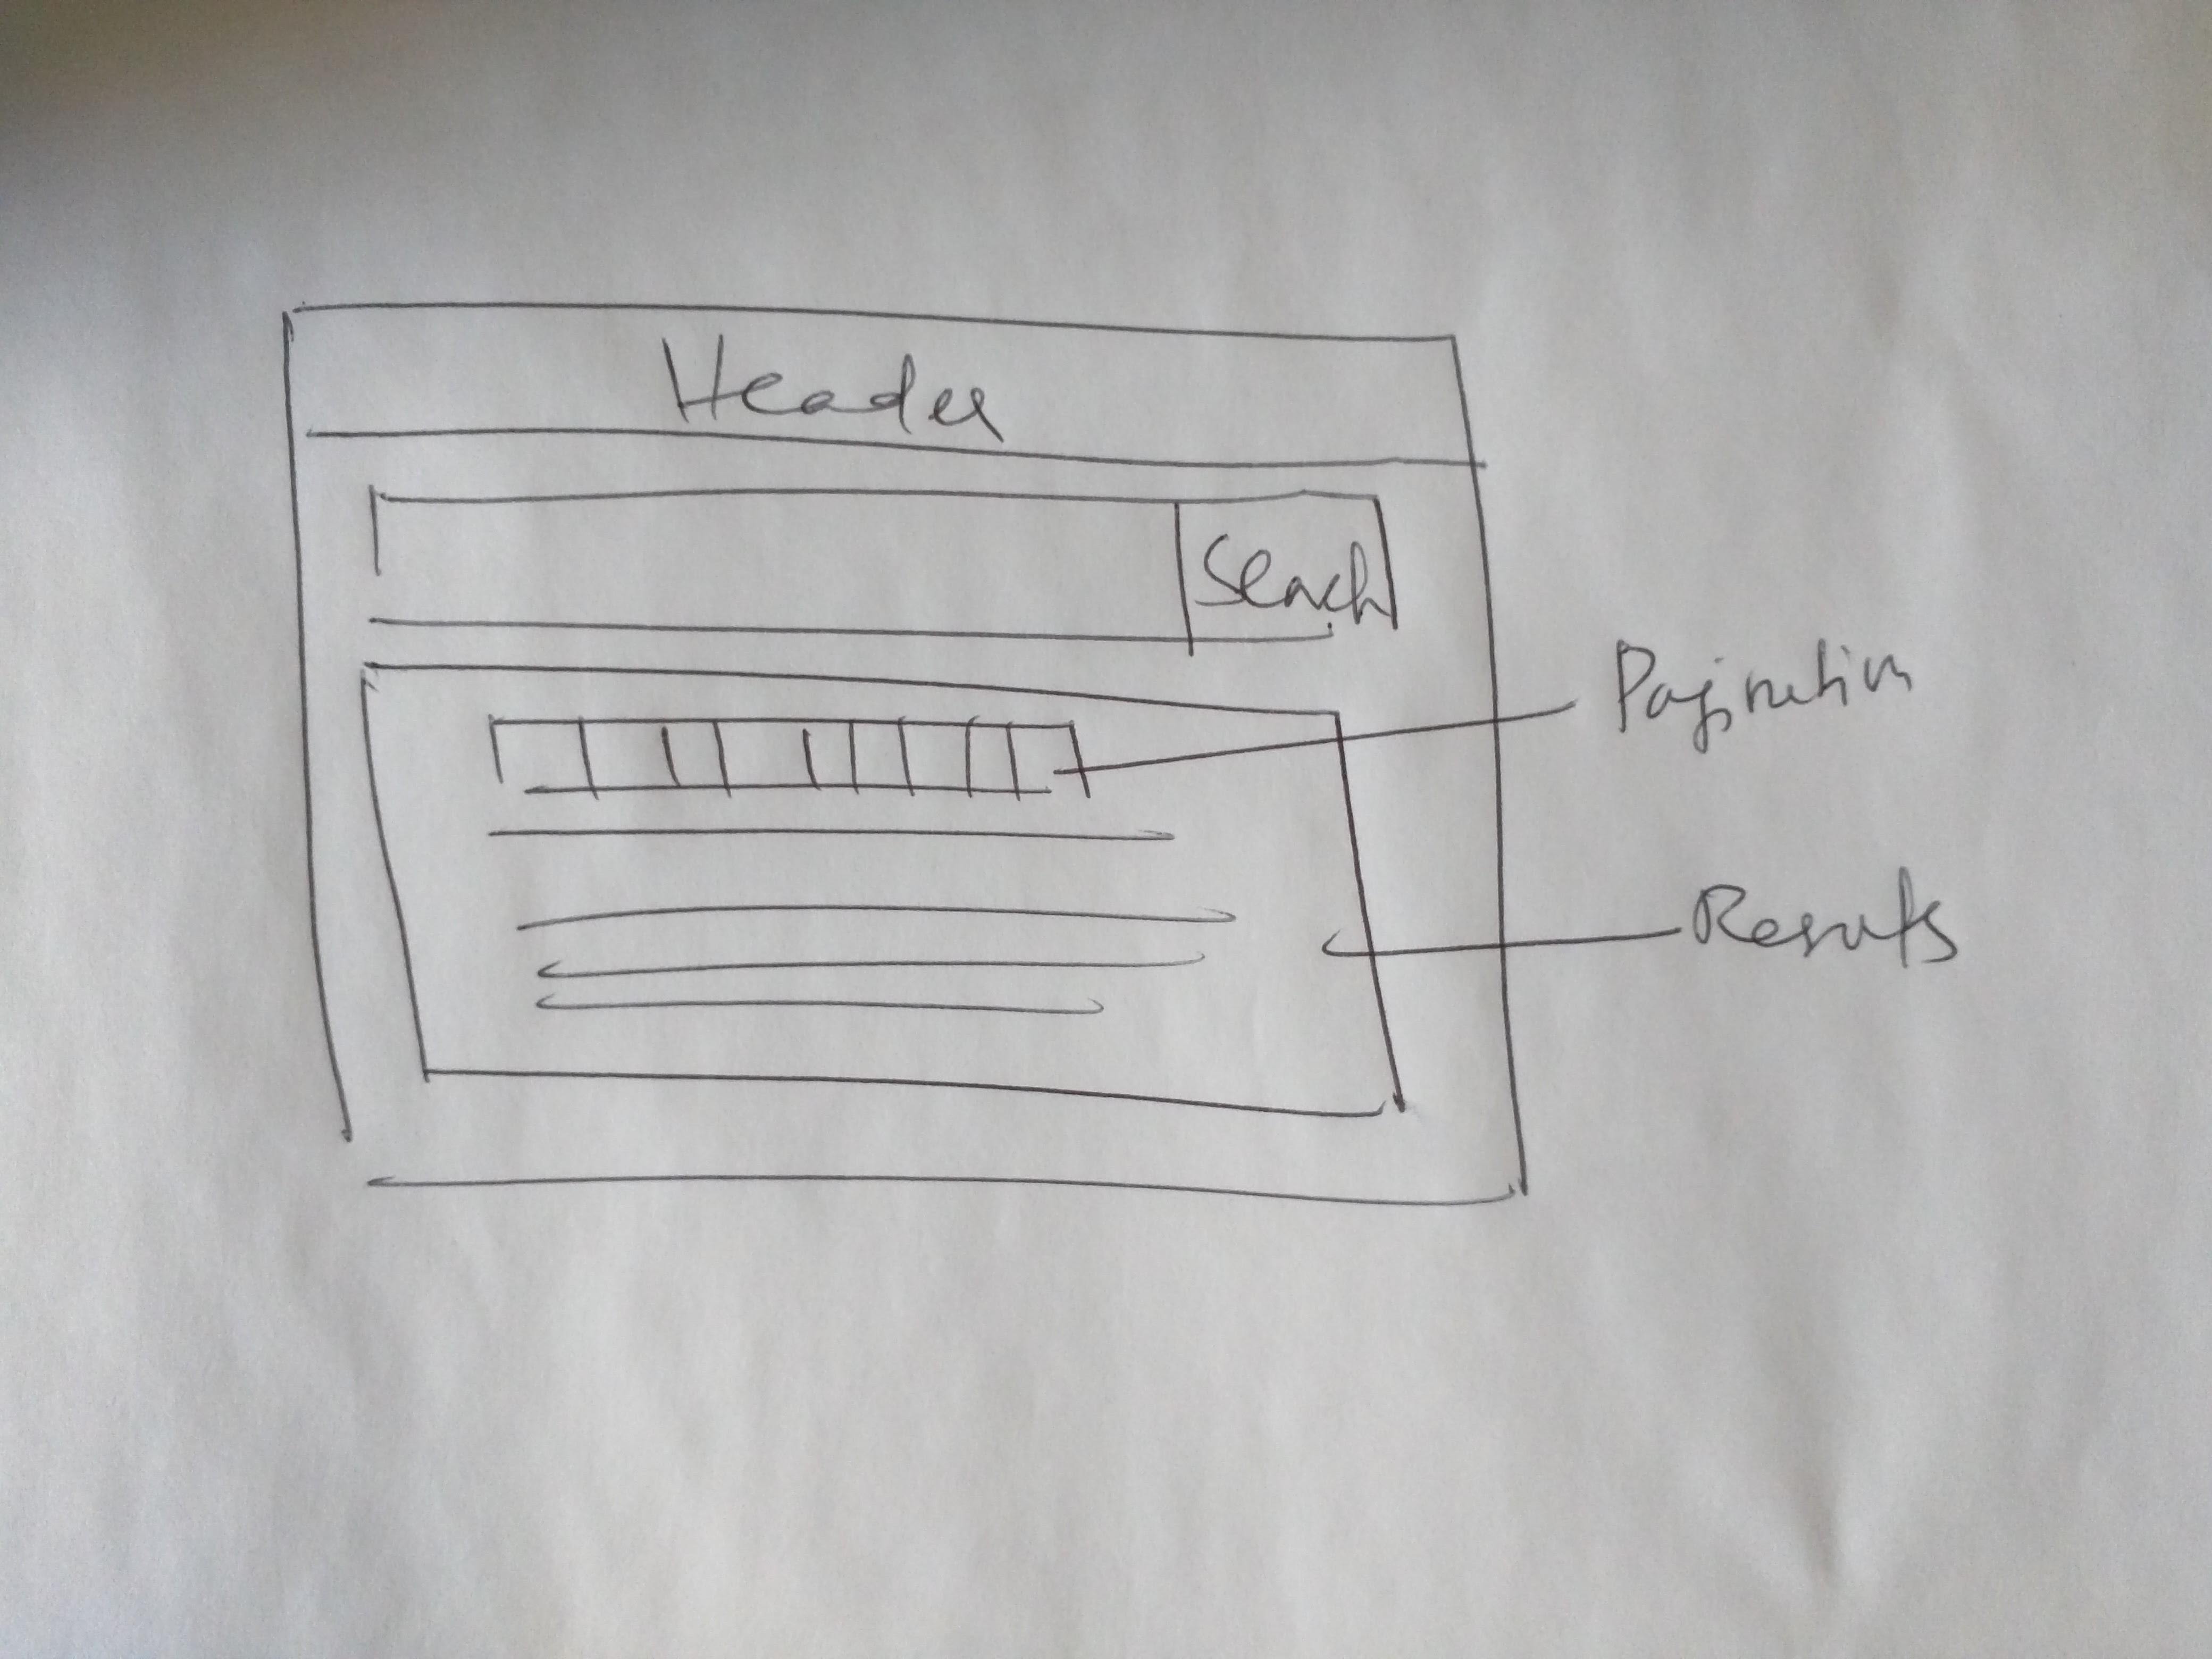 Header
Search
Pagination
Results